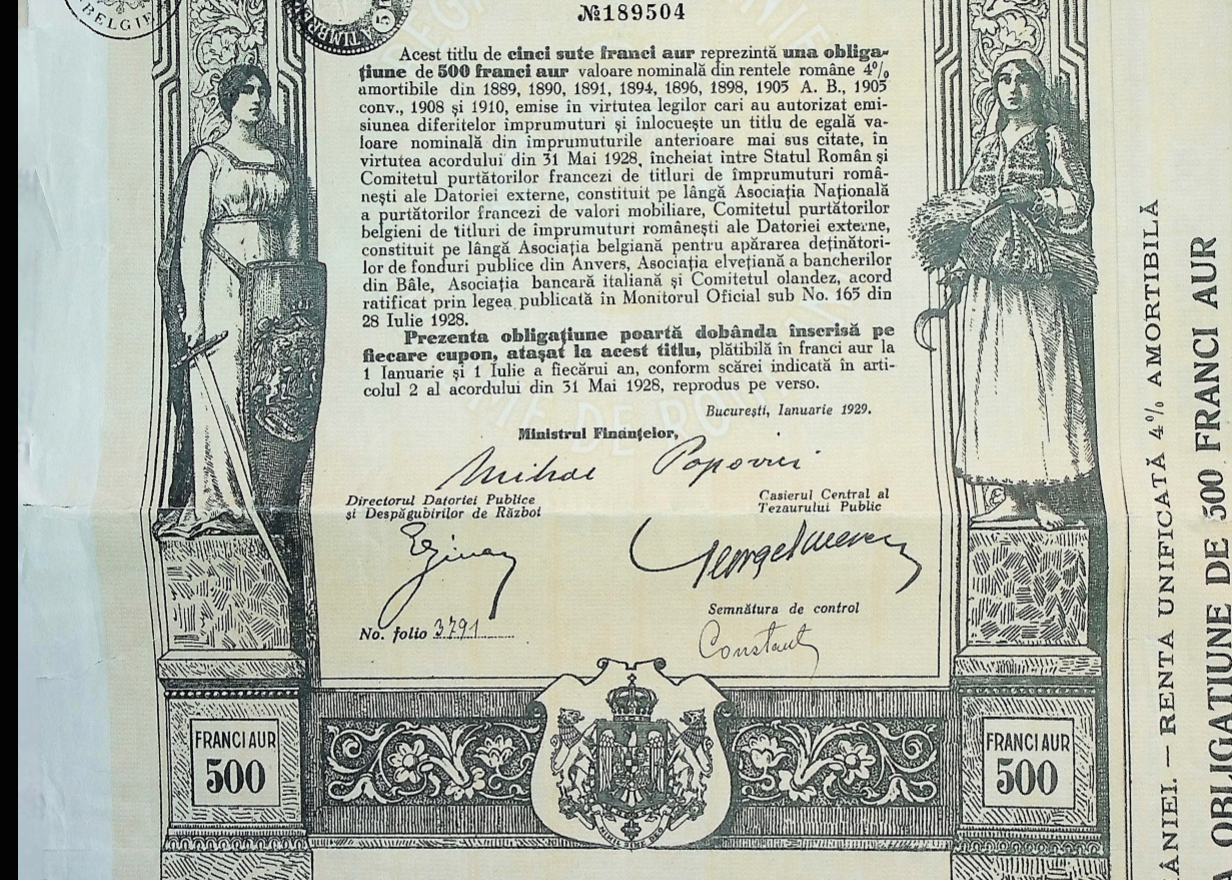 BELGIE
TIMBRE
№189504
Acest titlu de cinci sute franci aur reprezintă una obliga-
țiune de 500 franci aur valoare nominală din rentele române 4%
amortibile din 1889, 1890, 1891, 1894, 1896, 1898, 1905 A. B., 1905
conv., 1908 și 1910, emise în virtutea legilor cari au autorizat emi-
siunea diferitelor împrumuturi și înlocuește un titlu de egală va-
loare nominală din împrumuturile anterioare mai sus citate, în
virtutea acordului din 31 Mai 1928, încheiat între Statul Român și
Comitetul purtătorilor francezi de titluri de împrumuturi româ-
nești ale Datoriei externe, constituit pe lângă Asociația Națională
a purtătorilor francezi de valori mobiliare, Comitetul purtătorilor
belgieni de titluri de împrumuturi românești ale Datoriei externe,
constituit pe lângă Asociația belgiană pentru apărarea deținători-
lor de fonduri publice din Anvers, Asociația elvețiană a bancherilor
din Bâle, Asociația bancară italiană și Comitetul olandez, acord
ratificat prin legea publicată în Monitorul Oficial sub No. 165 din
28 Iulie 1928.
Prezenta obligațiune poartă dobânda înscrisă pe
fiecare cupon, atașat la acest titlu, plătibilă în franci aur la
1 Ianuarie și 1 Iulie a fiecărui an, conform scărei indicată în arti-
colul 2 al acordului din 31 Mai 1928, reprodus pe verso.
București, Ianuarie 1929.
Ministrul Finanțelor,
Mihai Popovici
Directorul Datoriei Publice
și Despăgubirilor de Război
Casierul Central al
Tezaurului Public
Semnătura de control
No. folio 3791
FRANCI AUR
500
FRANCI AUR
500
NIHIL SINE DEO
ÂNIEI. — RENTA UNIFICATĂ 4% AMORTIBILĂ
OBLIGAȚIUNE DE 500 FRANCI AUR